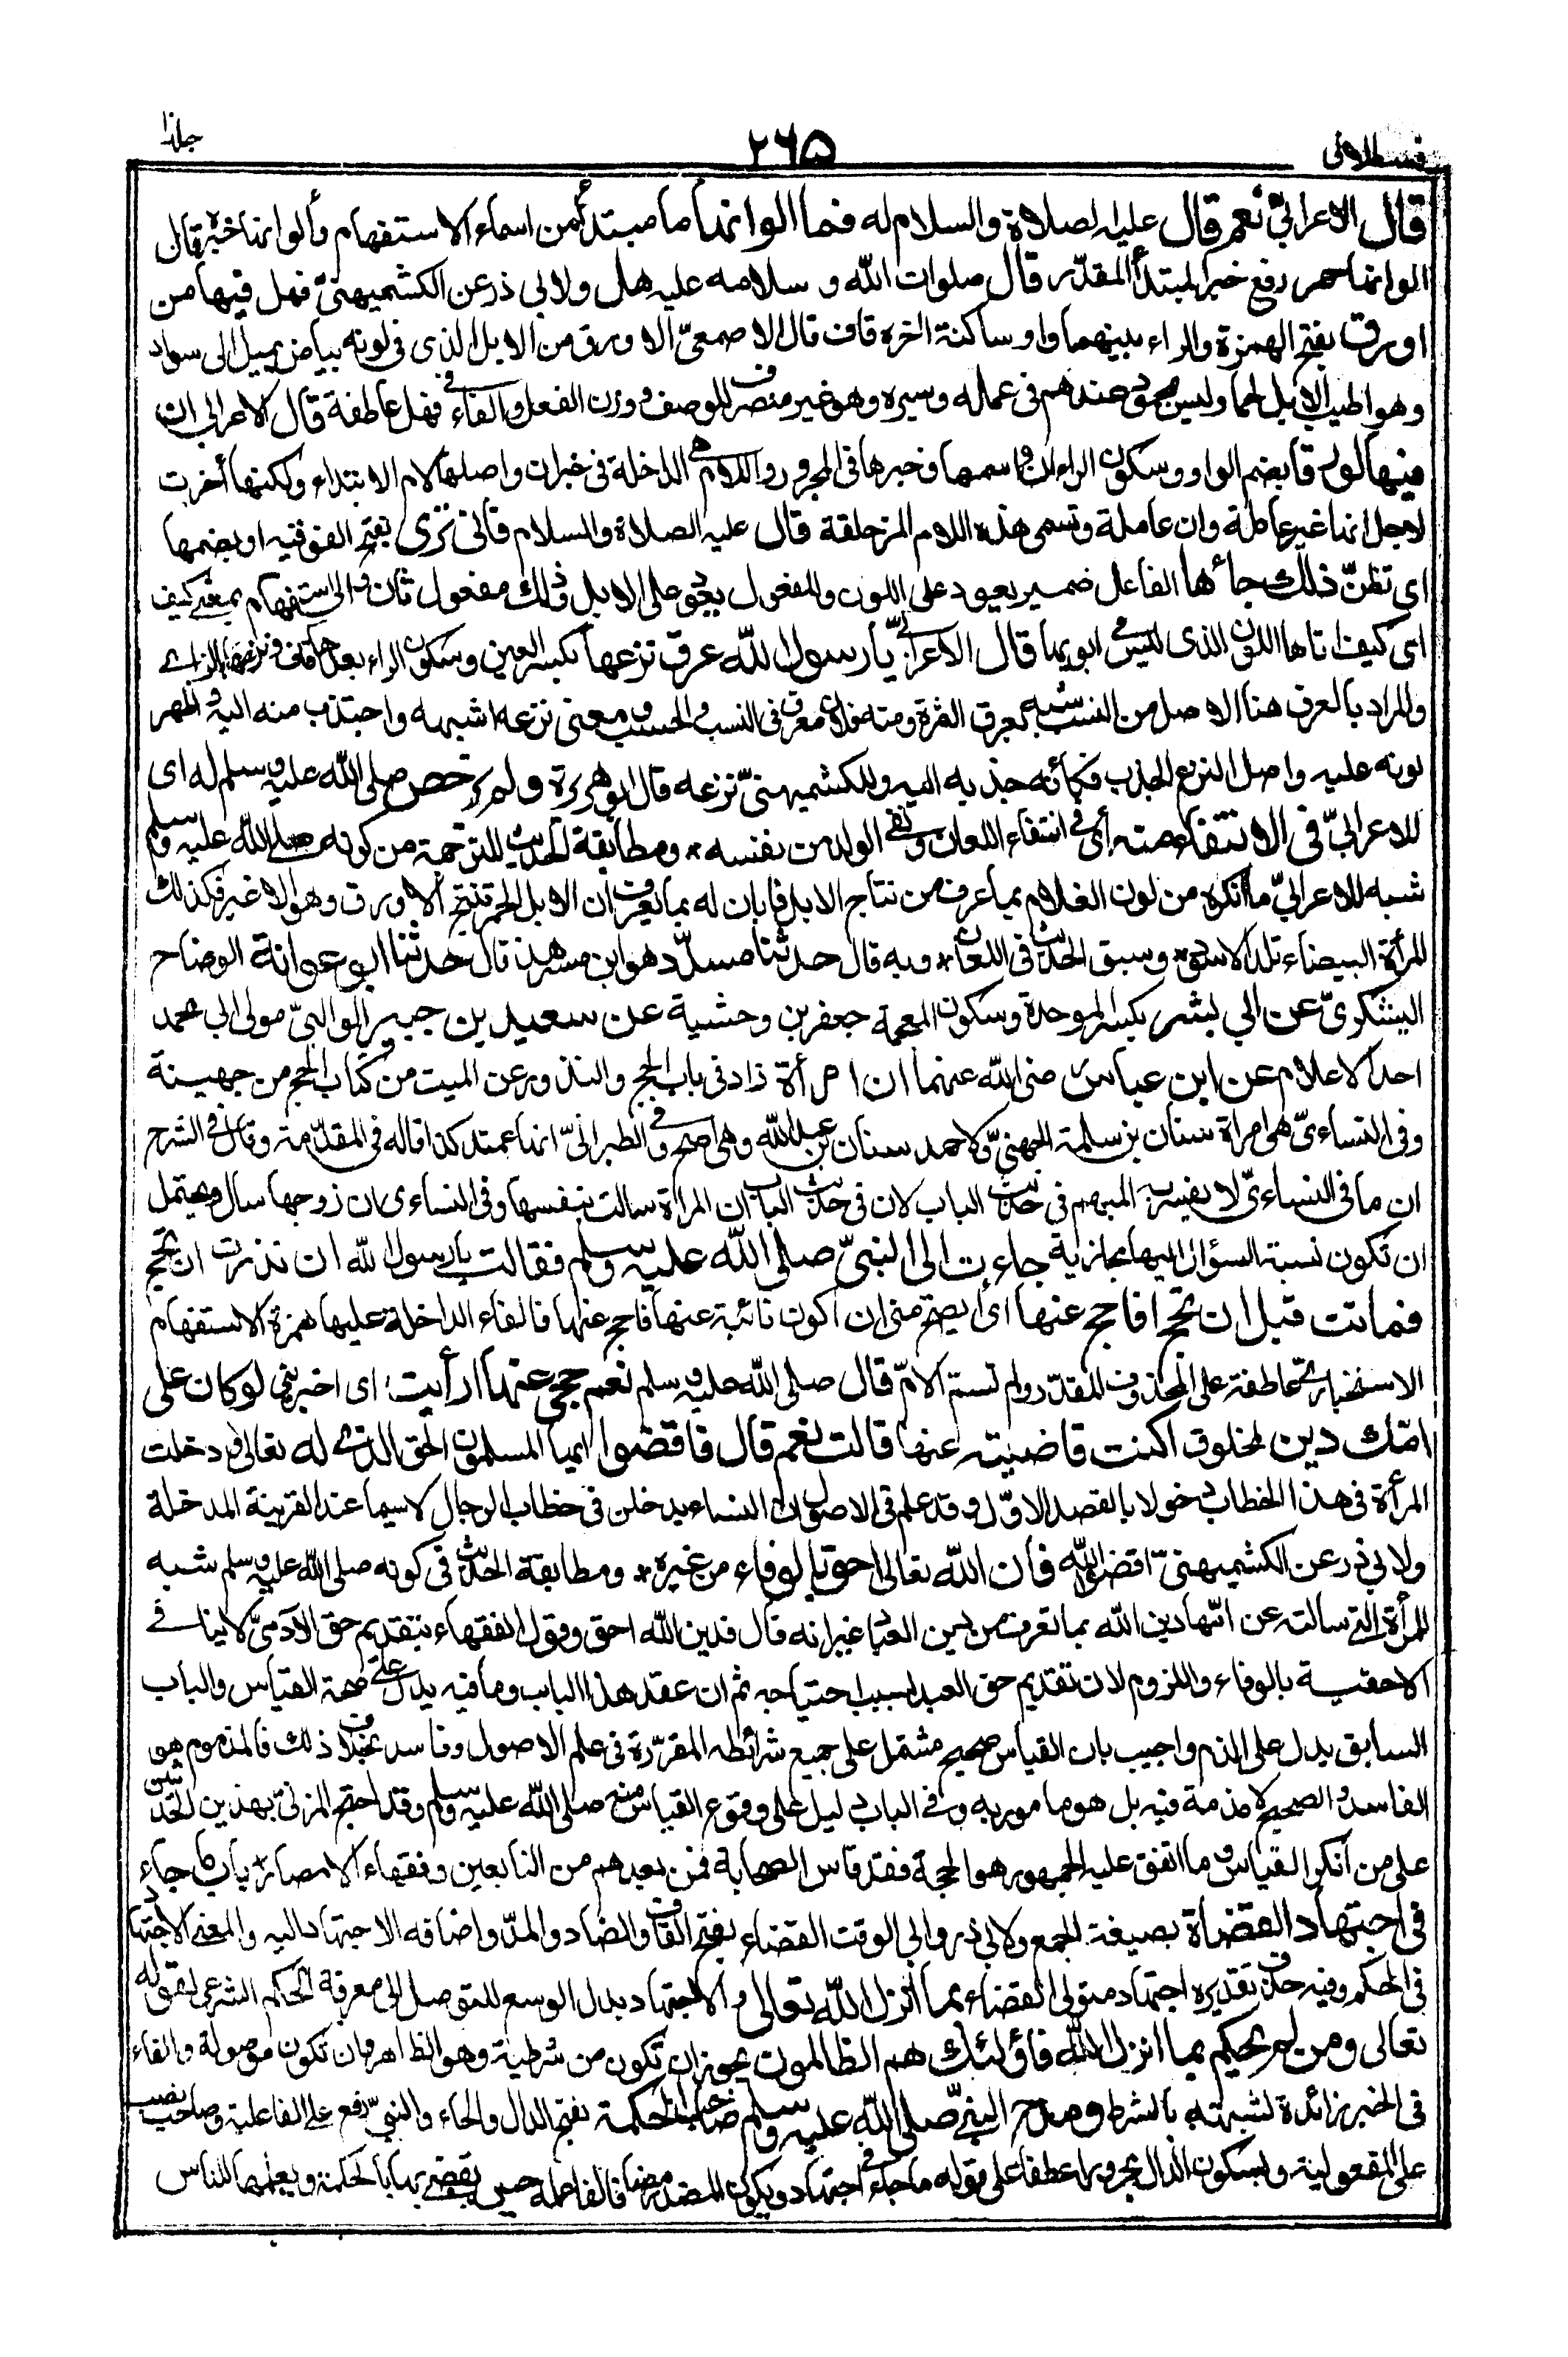 قسطلانی
۲۶۵
جلد۱
قال الاعرابیّ نعم قال علیه الصلاة والسلام له فما الوانها ما مبتدأ من اسماء الاستفهام وألوانها خبره قال
الوانها حمر رفع خبر المبتدأ المقدّر قال صلوات الله وسلامه علیه هل ولابی ذر عن الکشمیهنیّ فهل فیها من
اورق بفتح الهمزة والراء بینهما واو ساکنة اخره قاف قال الاصمعیّ الاورق من الابل الذی فی لونه بیاض یمیل الی سواد
وهو اطیب الابل لحما ولیس بمحمود عندهم فی عمله وسیره وهو غیر منصرف للوصف ووزن الفعل والفاء فی فهل عاطفة قال الاعرابی ان
فیها لورقا بضم الواو وسکون الراء ان واسمها وخبرها فی المجرور واللام هی الداخلة فی خبر ان واصلها لام الابتداء ولکنها أخرت
لاجل انها غیر عاملة وان عاملة وتسمی هذه اللام المزحلقة قال علیه الصلاة والسلام فأنی تری بفتح الفوقیه او بضمها
ای تظنّ ذلك جاءها الفاعل ضمیر یعود علی اللون والمفعول یعود علی الابل وذلك مفعول ثان وانی استفهام بمعنی کیف
ای کیف اتاها اللون الذی لیس فی ابویها قال الاعرابیّ یا رسول الله عرق نزعها بکسر العین وسکون الراء بعدها قاف ونزعها بالزای
والمراد بالعرق هنا الاصل من النسب شبه بعرق الثمرة ومنه فلان معرق فی النسب والحسب ومعنی نزعه اشبهه واجتذب منه الیه واظهر
لونه علیه واصل النزع الجذب فکأنه جذبه الیه وللکشمیهنیّ نزعه قال ابو هریرة ولم یرخص صلی الله علیه وسلم له ای
للاعرابیّ فی الانتفاء منه أی فی انتفاء اللعان ونفی الولد من نفسه * ومطابقة الحدیث للترجمة من کونه صلی الله علیه وسلم
شبه للاعرابیّ ما انکره من لون الغلام بما عرف من نتاج الابل فابان له بما یعرف ان الابل الحمر تنتج الاورق وهو الاغبر فکذلك
المرأة البیضاء تلد الاسود * وسبق الحدیث فی اللعان * وبه قال حدثنا مسدّد هو ابن مسرهد قال حدثنا ابو عوانة الوضاح
الیشکریّ عن ابی بشر بکسر الموحدة وسکون المعجمة جعفر بن وحشیة عن سعید بن جبیر الوالبیّ مولی ابی محمد
احد الاعلام عن ابن عباس رضی الله عنهما ان امرأة زاد فی باب الحج والنذور عن المیت من کتاب الحج من جهینة
وفی النساءیّ هی امرأة سنان بن سلمة الجهنیّ ولاحمد سنان بن عبد الله وهی اصح وفی الطبرانیّ انها عمته کذا قاله فی المقدّمة وقال فی الشرح
ان ما فی النساءیّ لا یفسر به المبهم فی حدیث الباب لان فی حدیث الباب ان المرأة سالت بنفسها وفی النساءی ان زوجها سال ویحتمل
ان تکون نسبة السؤال الیها مجازیة جاءت الی النبیّ صلی الله علیه وسلم فقالت یا رسول الله ان نذرت ان تحج
فماتت قبل ان تحج افاحج عنها ای ایصح منی ان اکون نائبة عنها فاحج عنها فالفاء الداخلة علیها همزة الاستفهام
الاستخباریّ عاطفة علی المحذوف المقدّر ولم تسم الامّ قال صلی الله علیه وسلم نعم حجی عنها ارأیت ای اخبرینی لو کان علی
امّك دین لمخلوق اکنت قاضیته عنها قالت نعم قال فاقضوا ایها المسلمون الحق الذی له تعالی ودخلت
المرأة فی هذا الخطاب دخولا بالقصد الاوّل وقد علم فی الاصول ان النساء یدخلن فی خطاب الرجال لاسیما عند القرینة المدخلة
ولابی ذر عن الکشمیهنیّ اقضوا الله فان الله تعالی احق بالوفاء من غیره * ومطابقة الحدیث فی کونه صلی الله علیه وسلم شبه
للمرأة التی سالته عن امّها دین الله بما تعرف من دین العباد غیر انه قال فدین الله احق وقول الفقهاء بتقدیم حق الآدمیّ لا ینافی
الاحقیة بالوفاء واللزوم لان تقدیم حق العبد بسبب احتیاجه ثم ان عقد هذا الباب وما فیه یدل علی صحة القیاس والباب
السابق یدل علی الذم واجیب بان القیاس صحیح مشتمل علی جمیع شرائطه المقرّرة فی علم الاصول وفاسد بخلاف ذلك فالمذموم هو
الفاسد والصحیح لا مذمة فیه بل هو مامور به وفی الباب دلیل علی وقوع القیاس منه صلی الله علیه وسلم وقد احتج المزنیّ بهذین الحدیثین
علی من انکر القیاس وما اتفق علیه الجمهور هو الحجة فقد قاس الصحابة فمن بعدهم من التابعین وفقهاء الامصار * باب ما جاء
فی اجتهاد القضاة بصیغة الجمع ولابی ذر وابی الوقت القضاء بفتح القاف والضاد والمدّ واضافه الاجتهاد الیه والمعنی الاجتهاد
فی الحکم وفیه حذف تقدیره اجتهاد متولی القضاء بما انزل الله تعالی والاجتهاد بذل الوسع للتوصل الی معرفة الحکم الشرعی لقوله
تعالی ومن لم یحکم بما انزل الله فأولئك هم الظالمون یجوز ان تکون من شرطیة وهو الظاهر وان تکون موصولة والفاء
فی الخبر زائدة لشبهته بالشرط ومدح النبیّ صلی الله علیه وسلم صاحب الحکمة بفتح الدال والحاء والنبیّ رفع علی الفاعلیة وصاحب نصب
علی المفعولیة وبسکون الدال مجرورا عطفا علی قوله ما جاء فی اجتهاد ویکون المصدر مضافا لفاعله حین یقضی بها بالحکمة ویعلمها للناس